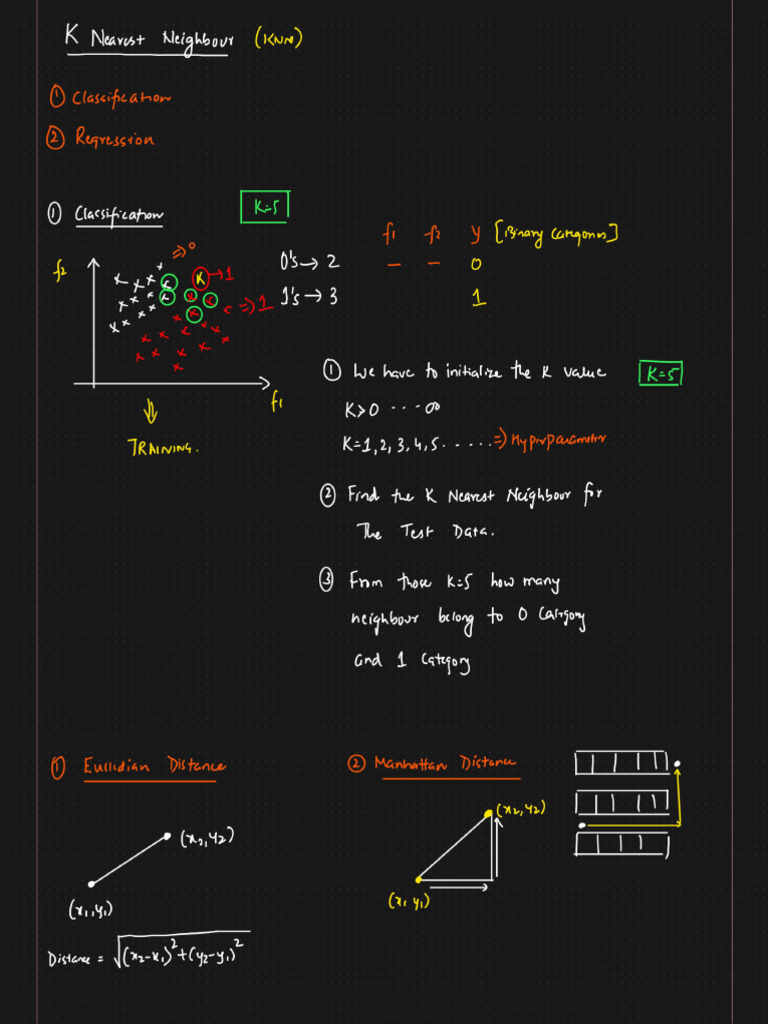 K Nearest Neighbour (KNN)
① Classification
② Regression
① Classification
K=5
f2
⇒ 0
x → 1
x ⇒ 1
f1
TRAINING.
0's → 2
1's → 3
f1 f2 y [Binary Categories]
— — 0
1
① We have to initialize the K value K=5
K>0 ...∞
K=1, 2, 3, 4, 5 ...... ⇒ Hyperparameter
② Find the K Nearest Neighbour for
The Test Data.
③ From those K=5 how many
neighbour belong to 0 Category
and 1 Category
① Euclidian Distance
(x2, y2)
(x1, y1)
Distance = √(x2-x1)²+(y2-y1)²
② Manhattan Distance
(x2, y2)
(x1 y1)